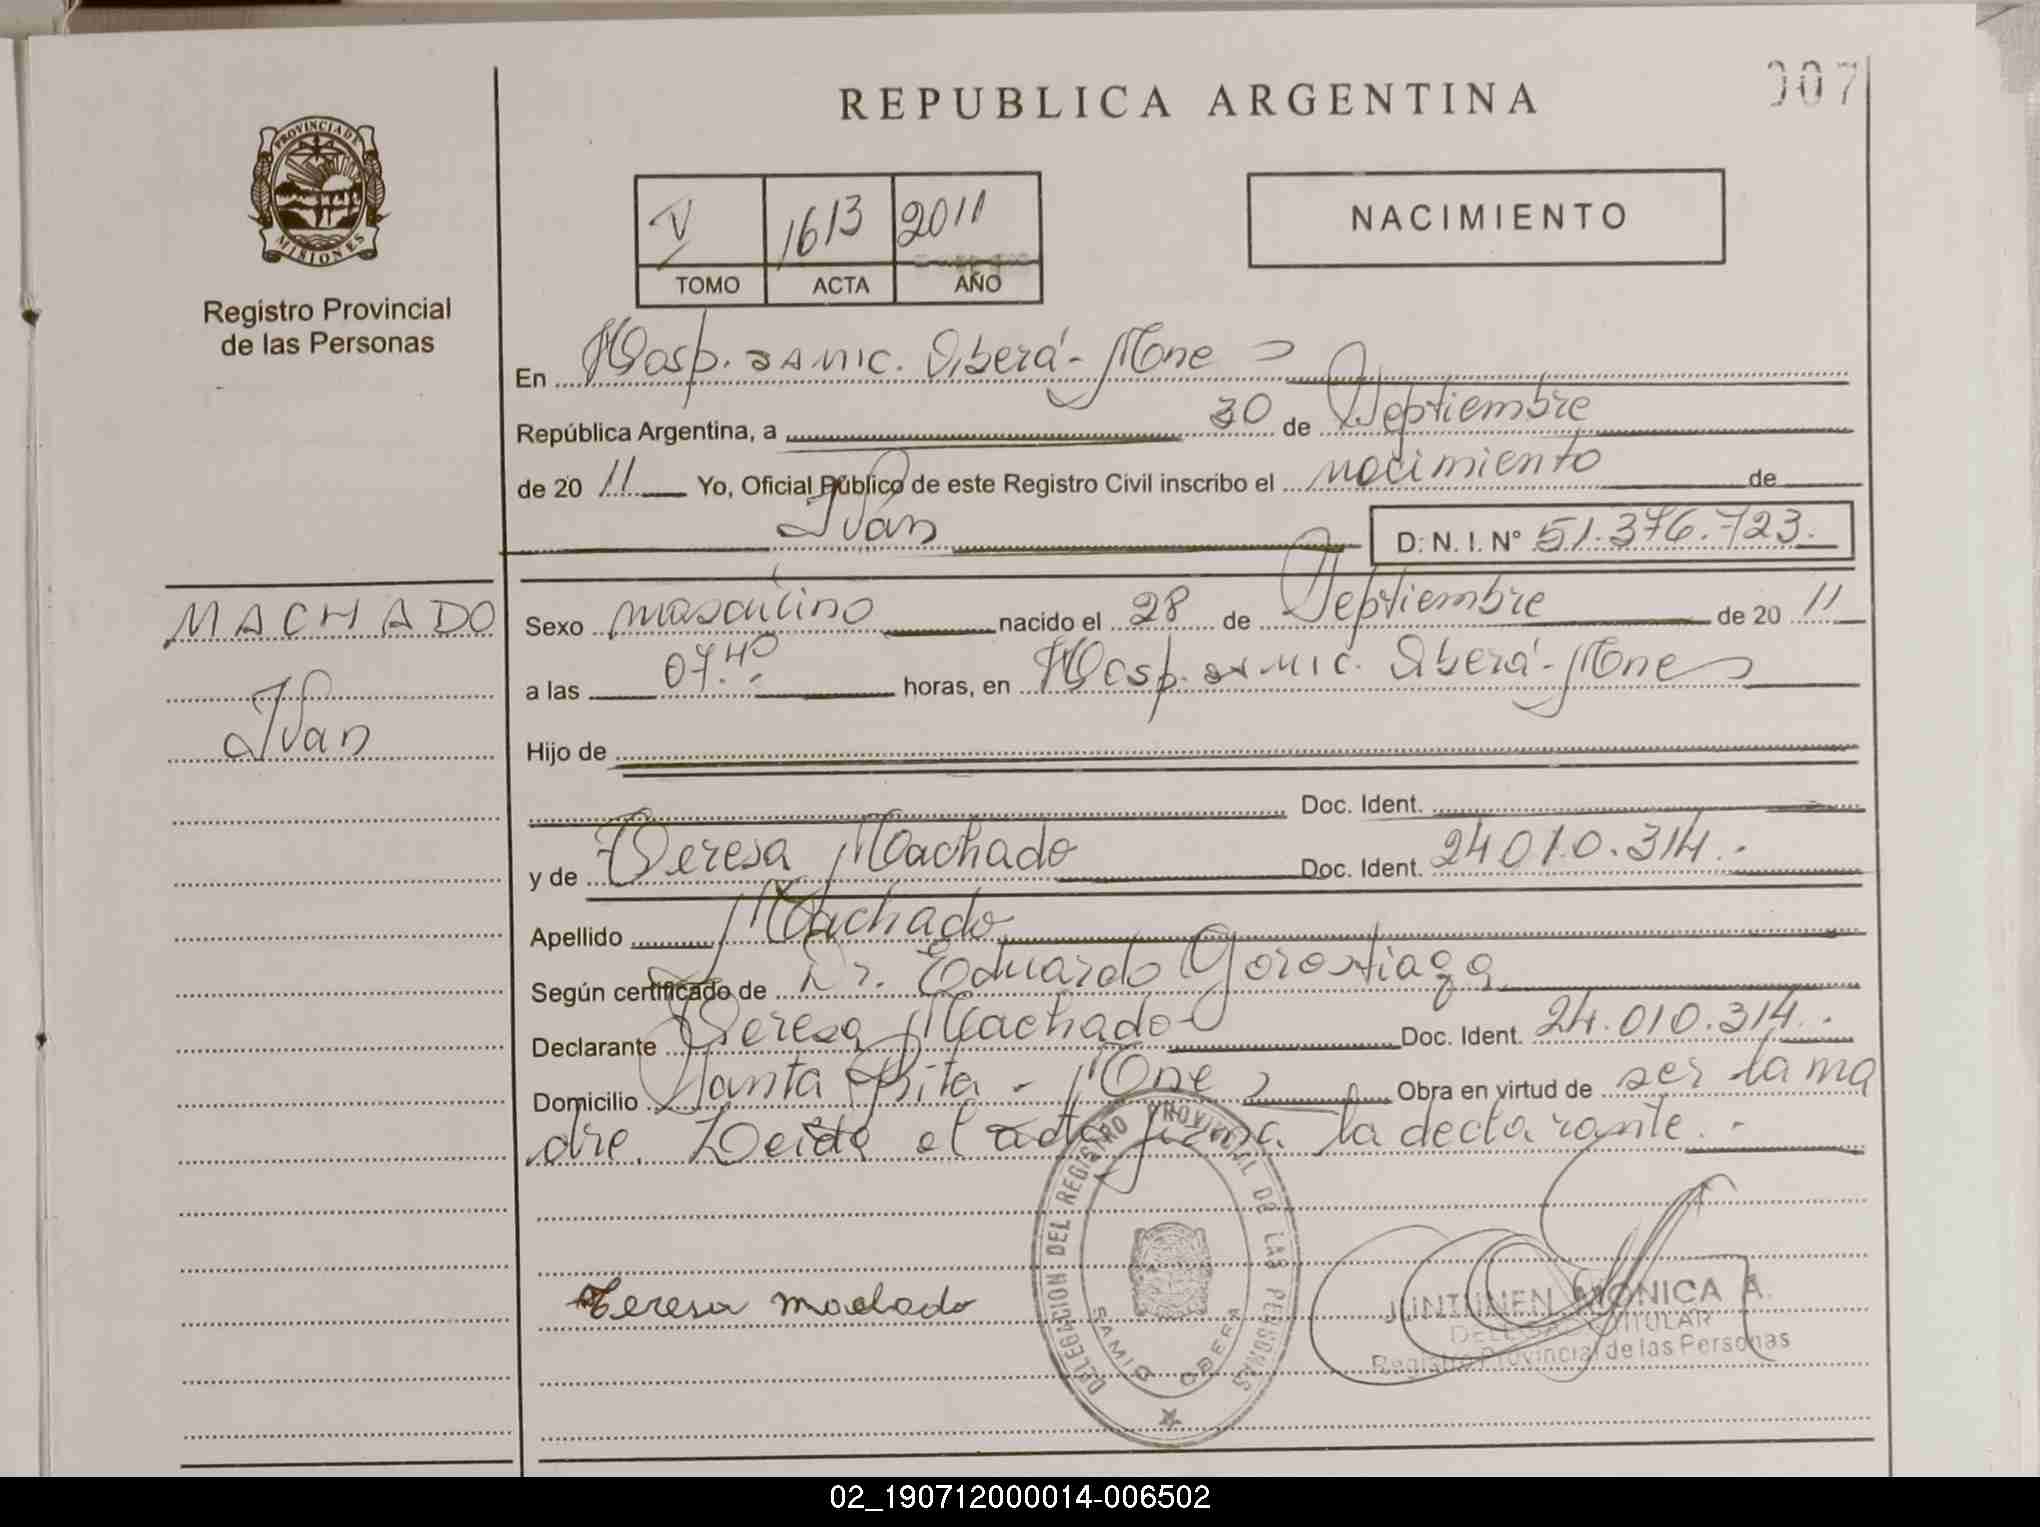 007
REPUBLICA ARGENTINA
PROVINCIA DE
MISIONES
Registro Provincial
de las Personas
V 1613 2011
TOMO ACTA AÑO
NACIMIENTO
En Hosp. SAMIC. Oberá - Mnes
República Argentina, a 30 de Septiembre
de 20 11 Yo, Oficial Público de este Registro Civil inscribo el nacimiento de
Iván D. N. I. N° 51.376.723.
MACHADO
Iván
Sexo masculino nacido el 28 de Septiembre de 20 11
a las 07.40 horas, en Hosp. SAMIC. Oberá - Mnes
Hijo de
Doc. Ident.
y de Teresa Machado Doc. Ident. 24.010.314.-
Apellido Machado
Según certificado de Dr. Eduardo Gorostiaga
Declarante Teresa Machado Doc. Ident. 24.010.314.-
Domicilio Santa Rita - Mnes Obra en virtud de ser la ma
dre. Leída el acta firma la declarante.-
Teresa machado
DELEGACION DEL REGISTRO PROVINCIAL DE LAS PERSONAS
SAMIC OBERA
JUNTUNEN MONICA A.
DELEGADA TITULAR
Registro Provincial de las Personas
02_190712000014-006502